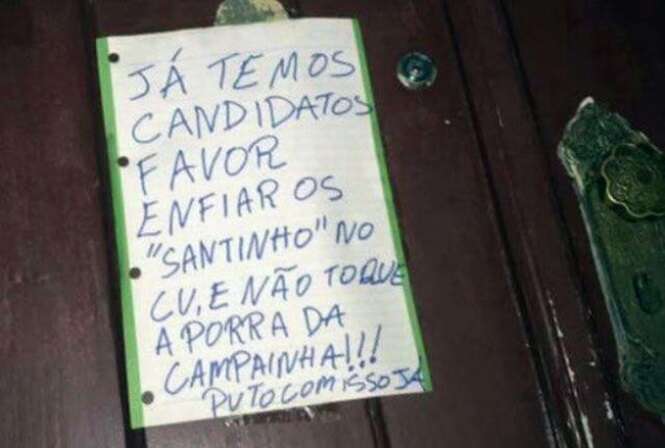 JÁ TEMOS
CANDIDATOS
FAVOR
ENFIAR OS
"SANTINHO" NO
CU, E NÃO TOQUE
A PORRA DA
CAMPAINHA!!!
PUTO COM ISSO JÁ